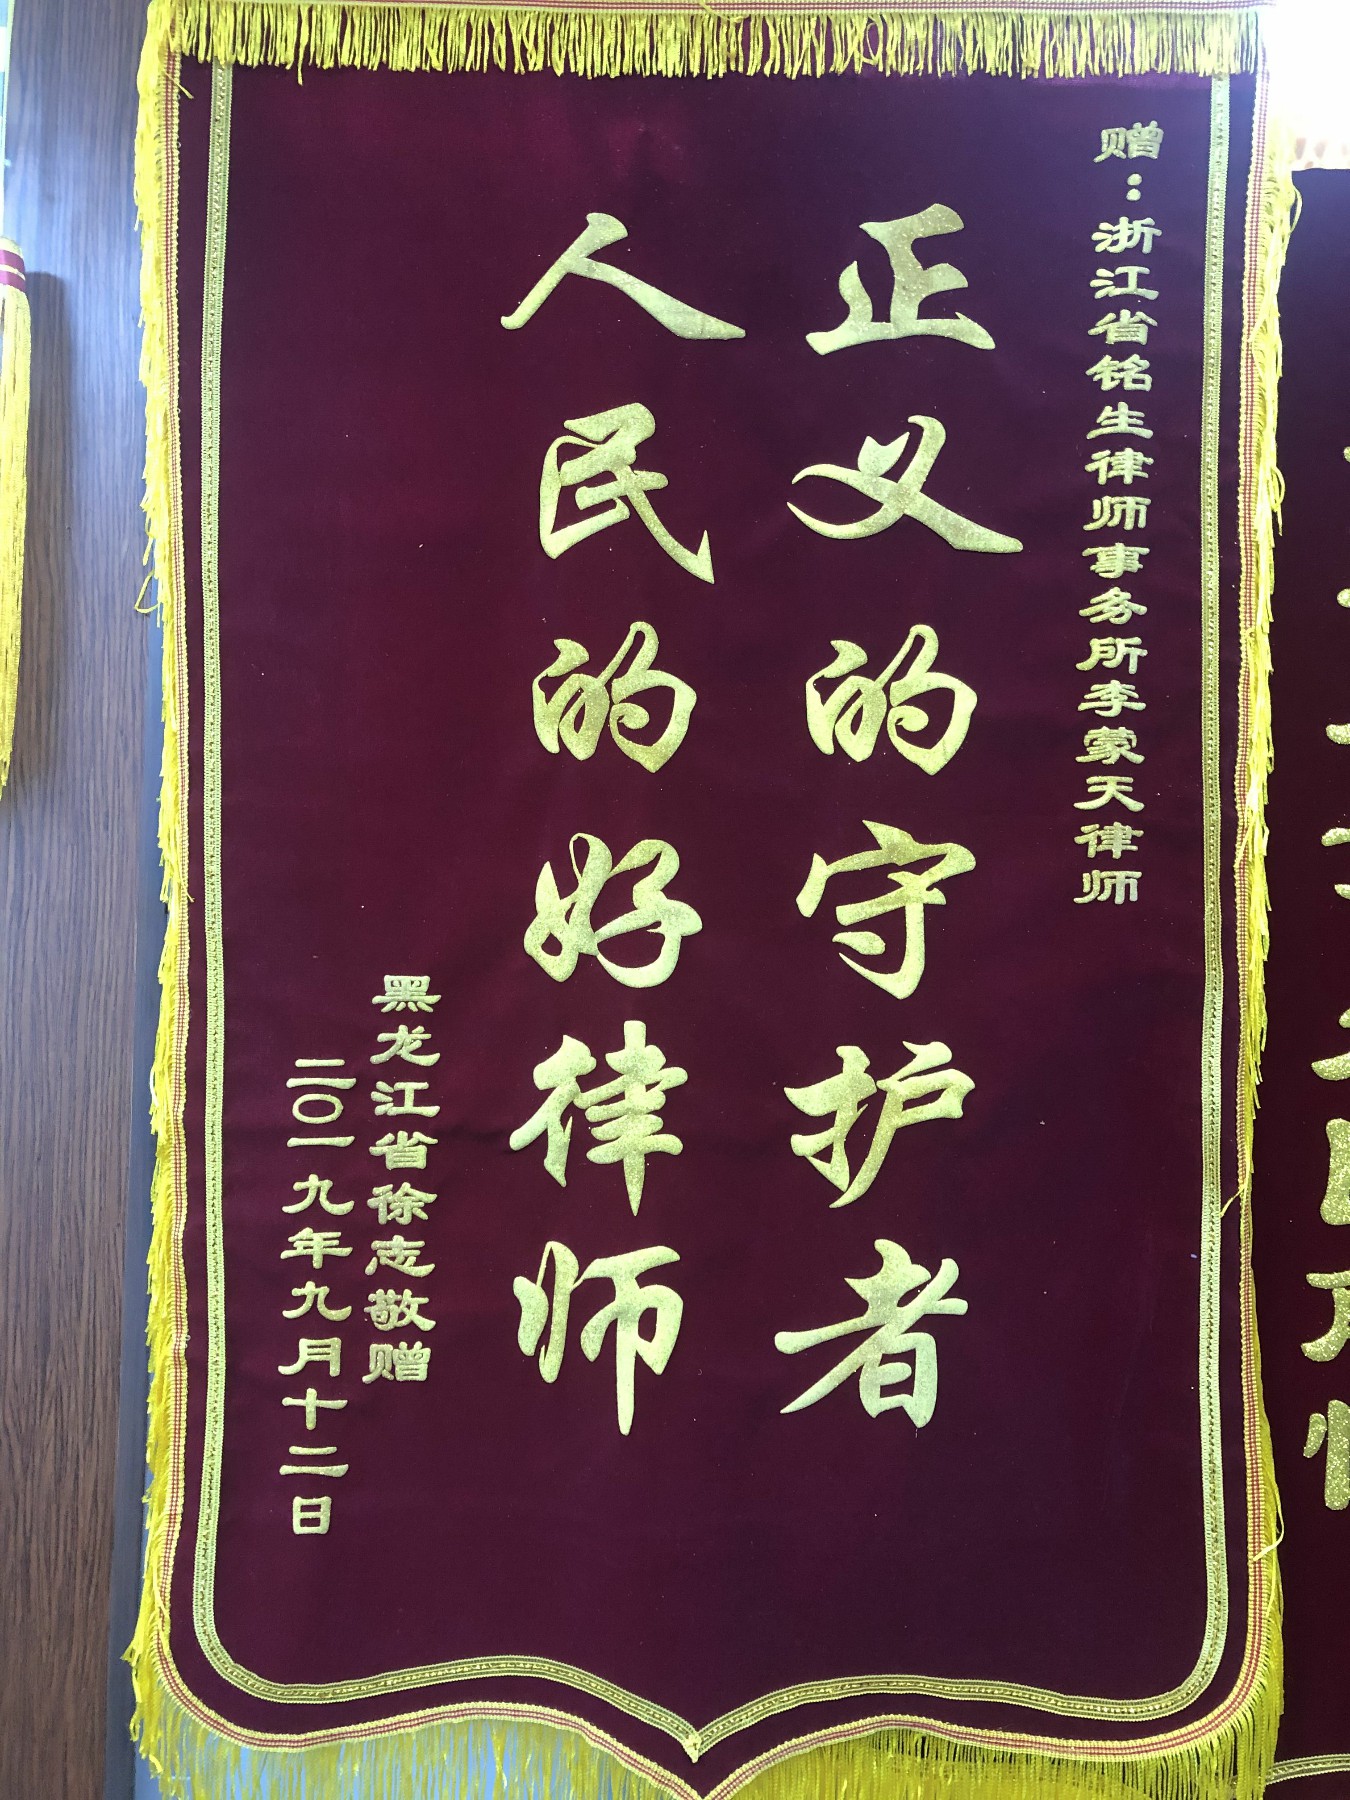 赠：浙江省铭生律师事务所李蒙天律师
正义的守护者
人民的好律师
黑龙江省徐志敬赠
二〇一九年九月十二日